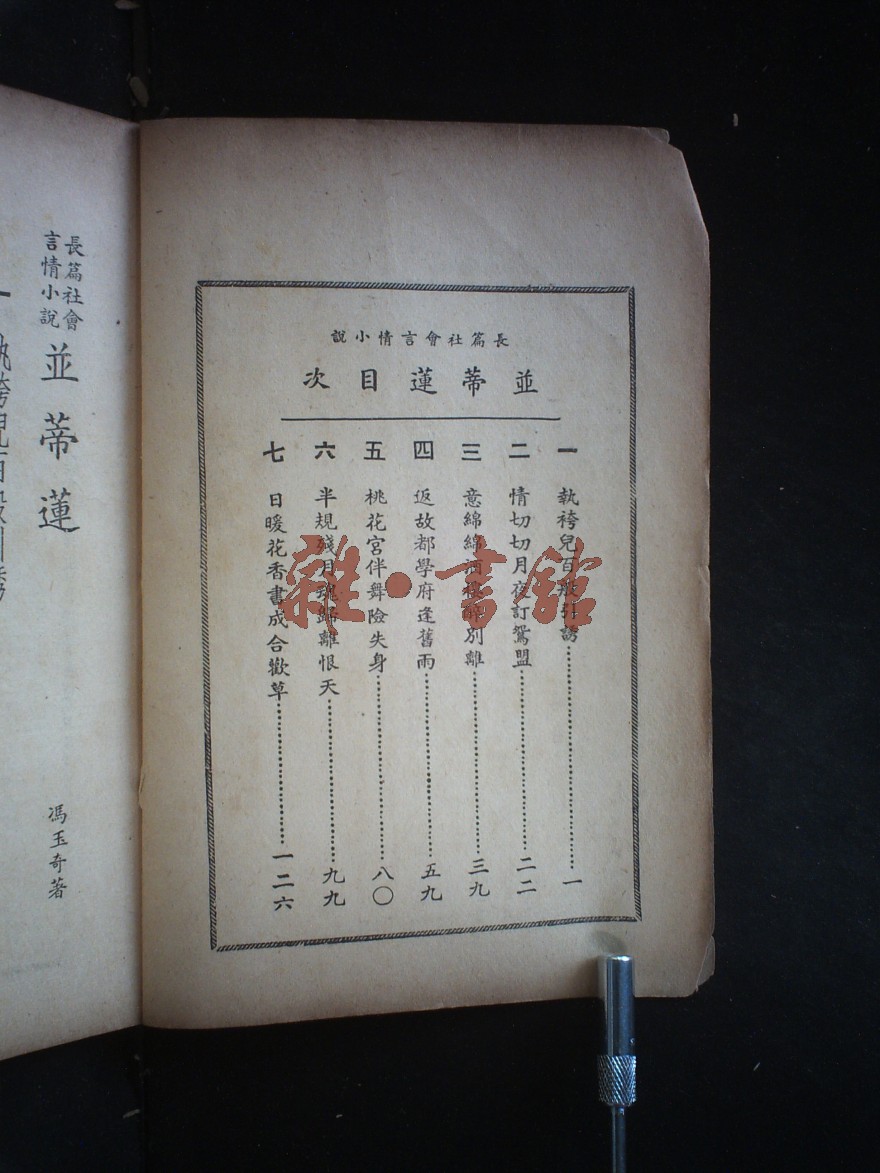 長篇社會言情小說
並蒂蓮目次
一 執袴兒百般引誘……一
二 情切切月夜訂鴛盟……二二
三 意綿綿酒樓醉別離……三九
四 返故都學府逢舊雨……五九
五 桃花宮伴舞險失身……八〇
六 半規殘月魂歸離恨天……九九
七 日暖花香書成合歡草……一二六
長篇社會
言情小說
並蒂蓮
馮玉奇著
雜·書館